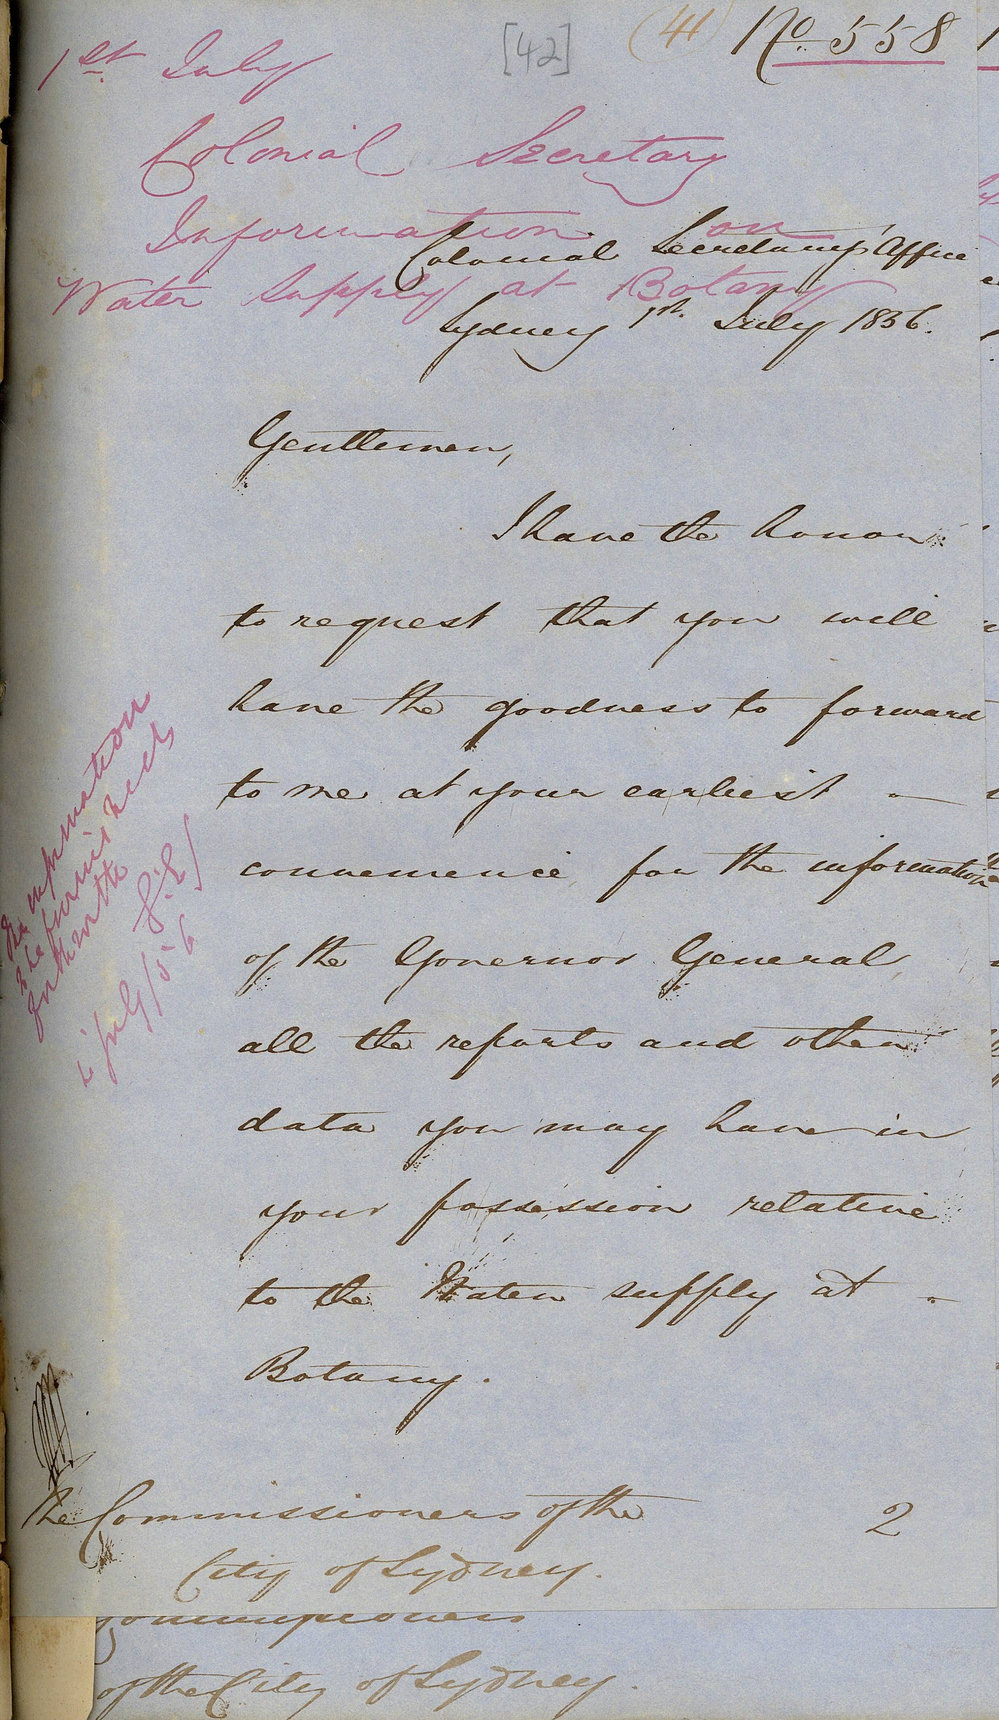 1st July
[42]
(41)
No. 558
Colonial Secretary
Information on
Water Supply at Botany
Colonial Secretary's Office
Sydney 1st. July 1856.
Gentlemen,
I have the honor
to request that you will
have the goodness to forward
to me at your earliest –
convenience for the information
of the Governor General,
all the reports and other
data you may have in
your possession relative
to the Water supply at -
Botany.
The information
to be furnished
forthwith
July / 56
The Commissioners of the
City of Sydney.
2
Commissioners
of the City of Sydney.